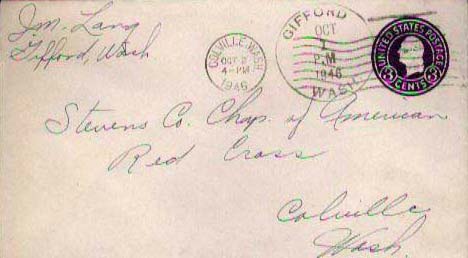 J.M. Lang
Gifford, Wash
COLVILLE, WASH.
OCT 2
4-PM
1946
GIFFORD
OCT
1
P.M
1946
WASH.
UNITED STATES POSTAGE
3 CENTS 3
Stevens Co. Chap. of American
Red Cross
Colville
Wash.